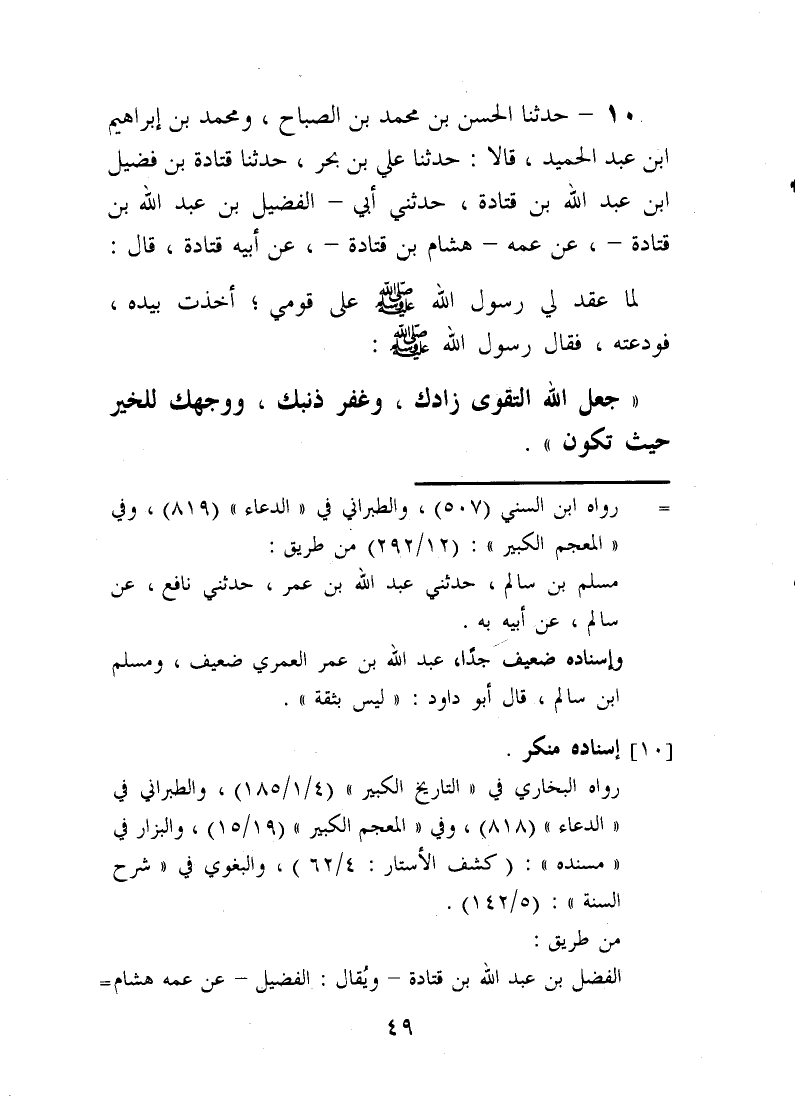 ١٠ – حدثنا الحسن بن محمد بن الصباح ، ومحمد بن إبراهيم
ابن عبد الحميد ، قالا : حدثنا علي بن بحر ، حدثنا قتادة بن فضيل
ابن عبد الله بن قتادة ، حدثني أبي – الفضيل بن عبد الله بن
قتادة – ، عن عمه – هشام بن قتادة – ، عن أبيه قتادة ، قال :
لما عقد لي رسول الله ﷺ على قومي ؛ أخذت بيده ،
فودعته ، فقال رسول الله ﷺ :
« جعل الله التقوى زادك ، وغفر ذنبك ، ووجهك للخير
حيث تكون » .
= رواه ابن السني (٥٠٧) ، والطبراني في « الدعاء » (٨١٩) ، وفي
« المعجم الكبير » : (٢٩٢/١٢) من طريق :
مسلم بن سالم ، حدثني عبد الله بن عمر ، حدثني نافع ، عن
سالم ، عن أبيه به .
وإسناده ضعيف جدًا، عبد الله بن عمر العمري ضعيف ، ومسلم
ابن سالم ، قال أبو داود : « ليس بثقة » .
[١٠] إسناده منكر .
رواه البخاري في « التاريخ الكبير » (١٨٥/١/٤) ، والطبراني في
« الدعاء » (٨١٨) ، وفي « المعجم الكبير » (١٥/١٩) ، والبزار في
« مسنده » : ( كشف الأستار : ٦٢/٤ ) ، والبغوي في « شرح
السنة » : (١٤٢/٥) .
من طريق :
الفضل بن عبد الله بن قتادة – ويُقال : الفضيل – عن عمه هشام=
٤٩